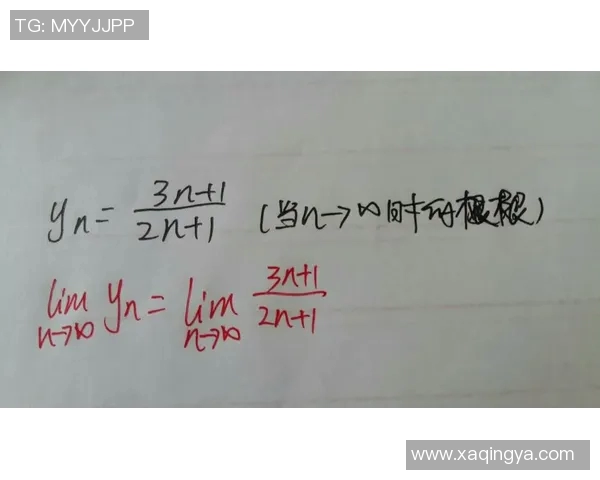 TG: MYYJJPP
yₙ = \frac{3n+1}{2n+1} (当n→∞时的极限)
\lim_{n→∞} yₙ = \lim_{n→∞} \frac{3n+1}{2n+1}
www.xaqingya.com